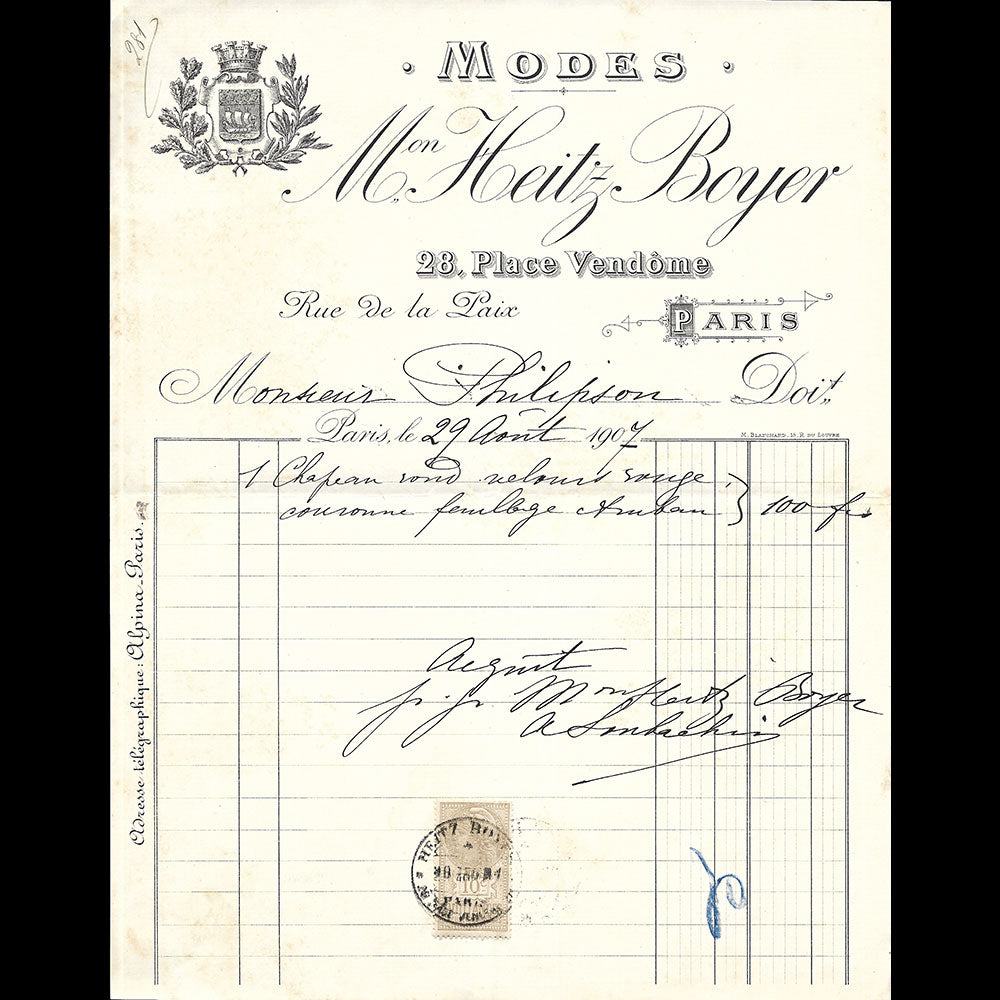 281
MODES
Mon Heitz-Boyer
28, Place Vendôme
Rue De la Paix
PARIS
Monsieur Philipson Doit
Paris, le 29 Août 1907
M. BLANCHARD, 15, R. DU LOUVRE
1 Chapeau rond velours rouge
couronne feuillage & ruban } 100 fcs
Acquit
p. p. Mon Heitz Boyer
Adresse télégraphique: Alpina-Paris.
HEITZ BOYER
10
PARIS